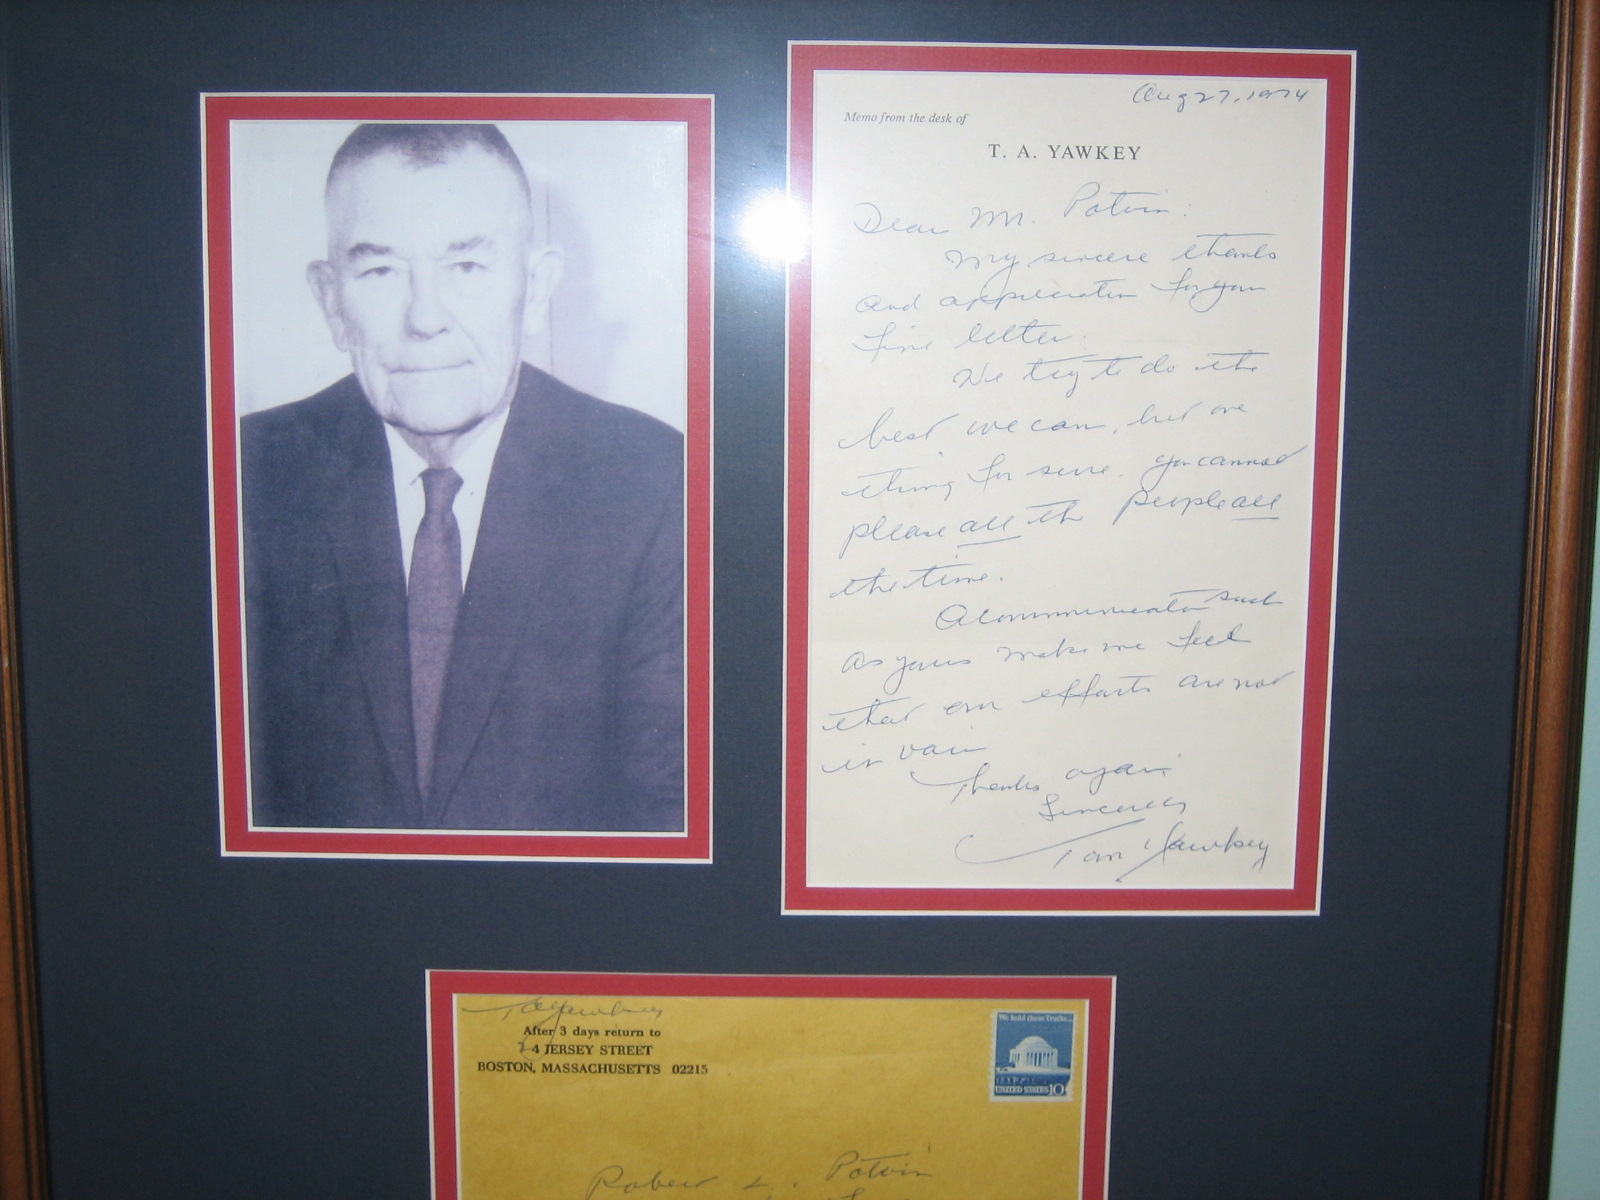 Aug 27, 1974
Memo from the desk of
T. A. YAWKEY
Dear Mr. Potvin:
My sincere thanks
and appreciation for your
fine letter.
We try to do the
best we can, but one
thing for sure. you cannot
please all the people all
the time.
A communication such
as yours make me feel
that our efforts are not
in vain
Thanks again
Sincerely
Tom Yawkey
T A Yawkey
After 3 days return to
24 JERSEY STREET
BOSTON, MASSACHUSETTS 02215
We hold these Truths...
UNITED STATES 10c
Robert L. Potvin